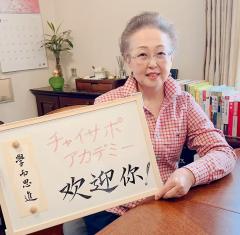 學而思進
チャイサポ
アカデミー
欢迎你!